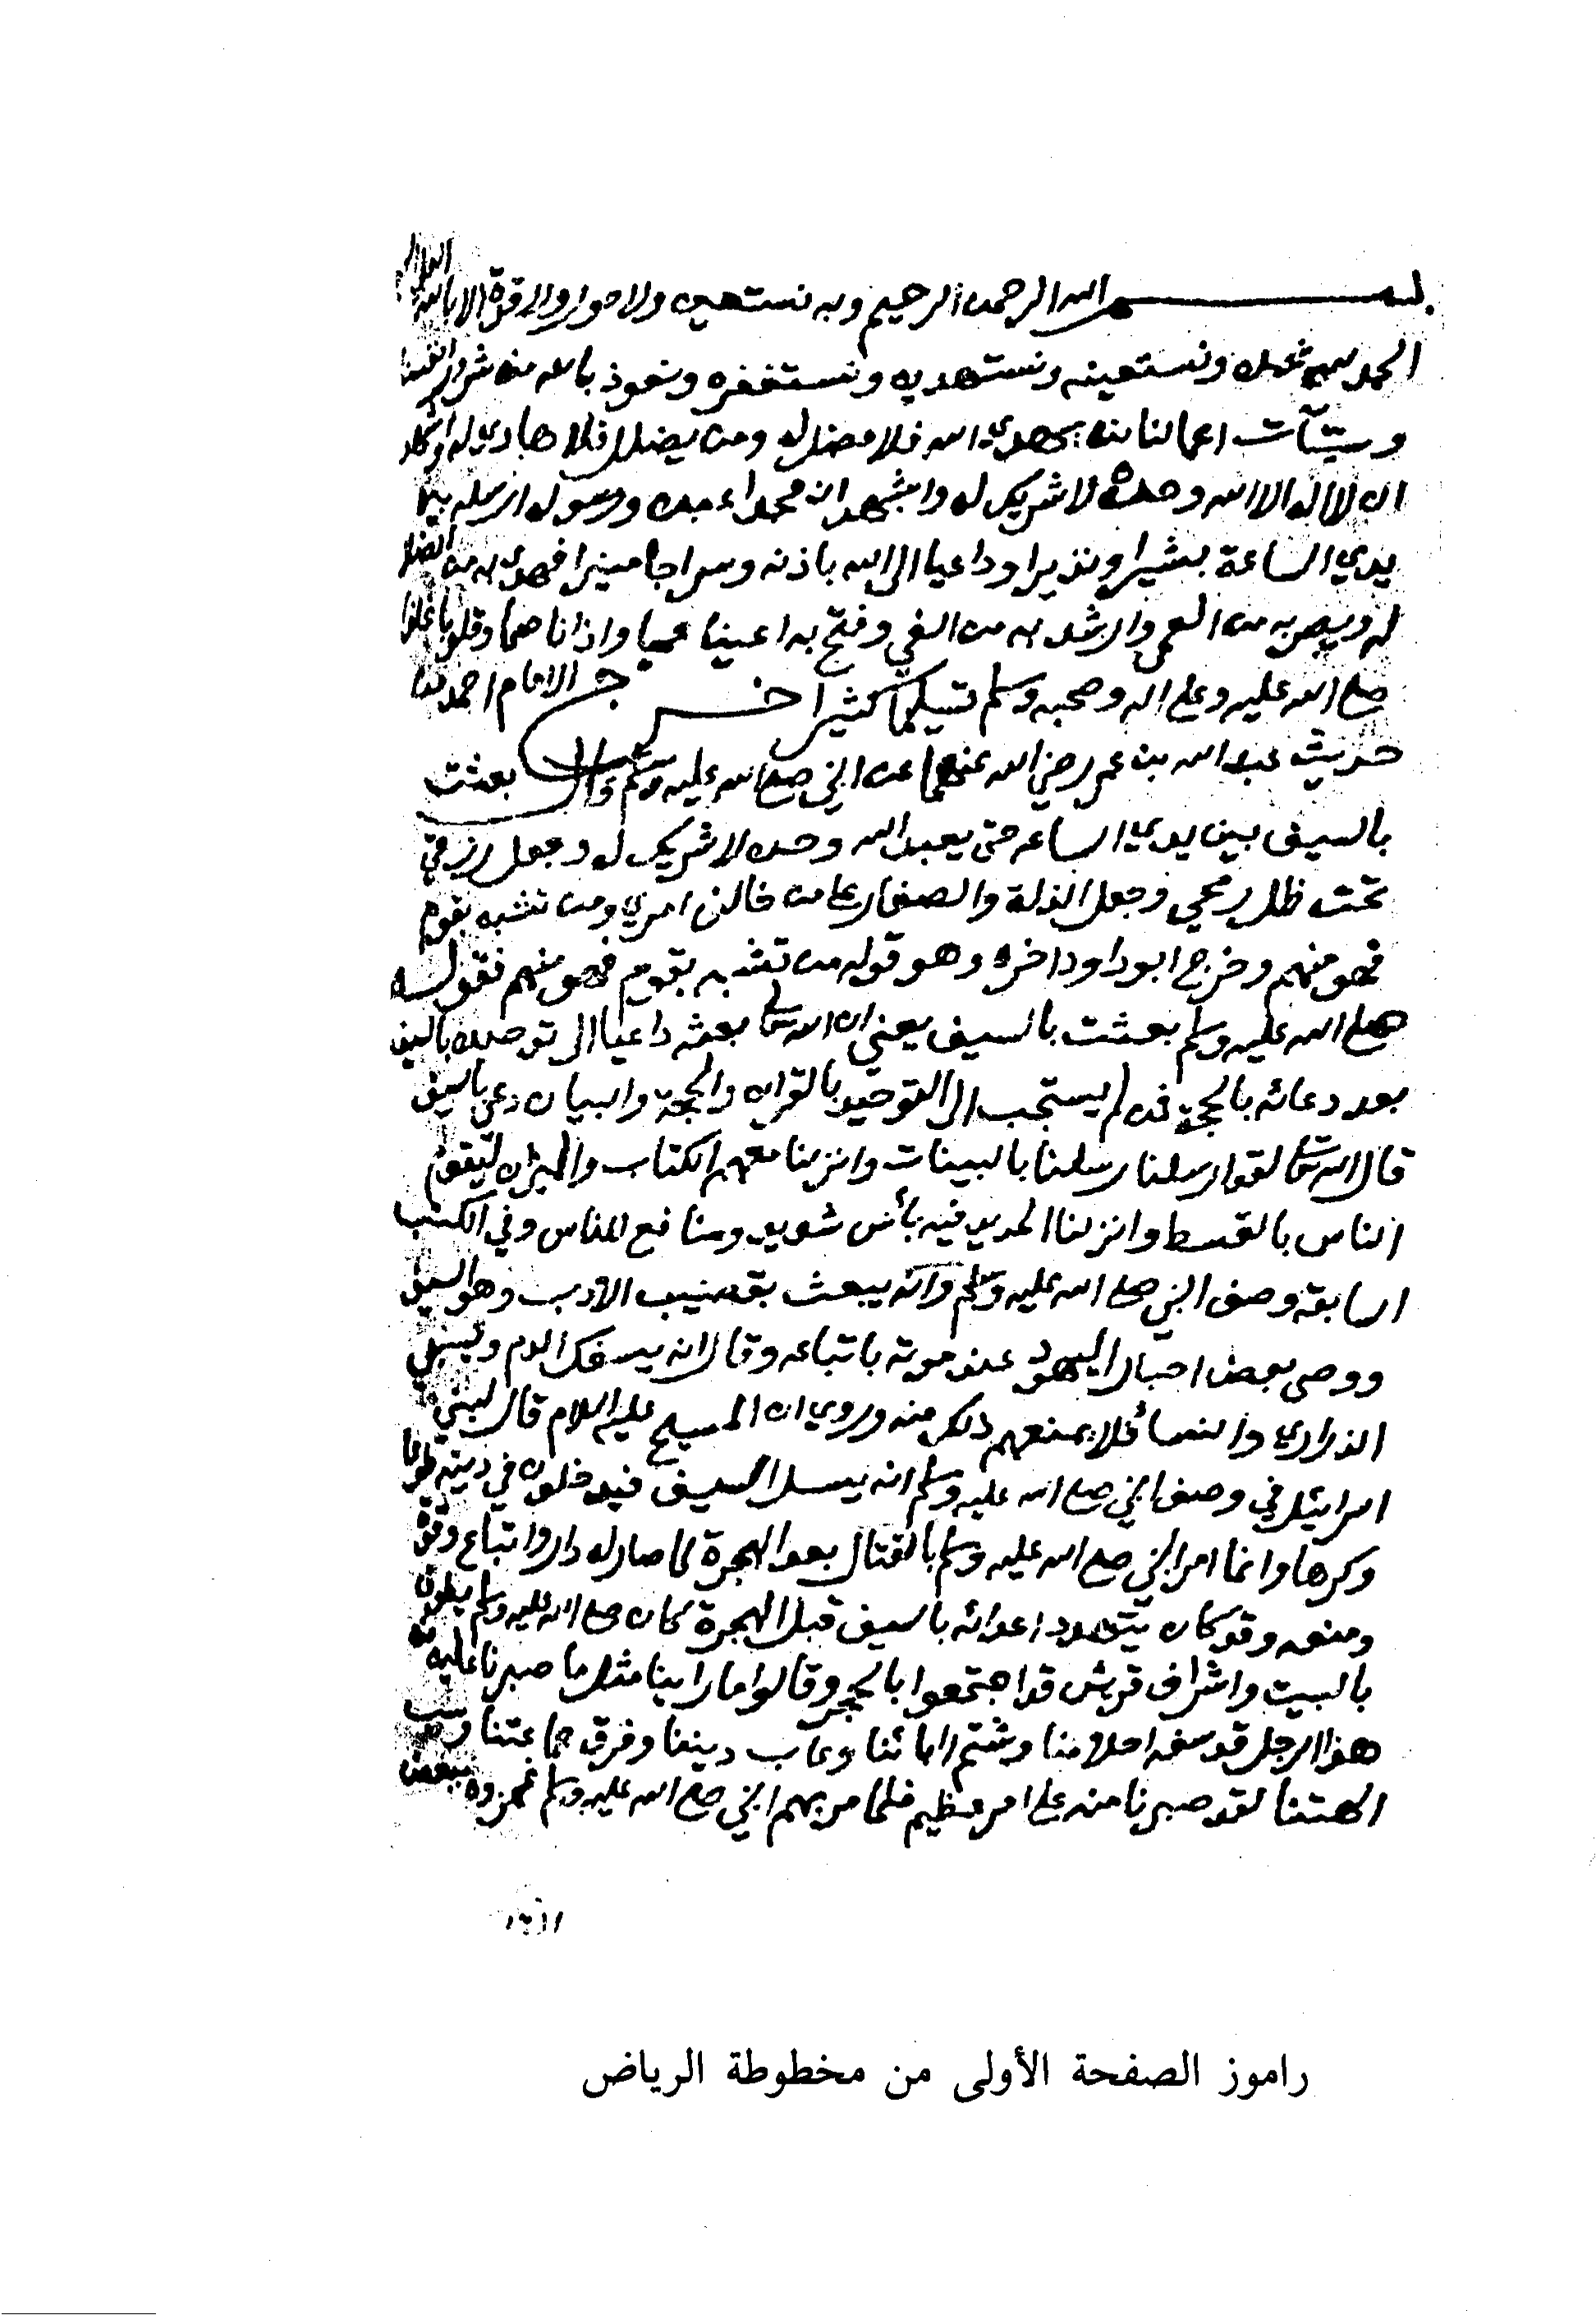 بسم الله الرحمن الرحيم وبه نستعين ولا حول ولا قوة الا بالله العلي
الحمد لله نحمده ونستعينه ونستهديه ونستغفره ونعوذ بالله من شرور انفسنا
وسيّآت اعمالنا من يهدي الله فلا مضل له ومن يضلل فلا هادي له واشهد
ان لا اله الا الله وحده لا شريك له واشهد ان محمدا عبده ورسوله ارسله بين
يدي الساعة بشيرا ونذيرا وداعيا الى الله باذنه وسراجا منيرا فهدى به من الضلا
له وبصر به من العمى وارشد به من الغي وفتح به اعينا عميا واذانا صما وقلوبا غلفا
صلى الله عليه وعلى اله وصحبه وسلم تسليما كثيرا خرج الامام احمد
حديث عبد الله بن عمر رضي الله عنهما عن النبي صلى الله عليه وسلم قال بعثت
بالسيف بين يدي الساعه حتى يعبد الله وحده لا شريك له وجعل رزقي
تحت ظل رمحي وجعل الذلة والصغار على من خالف امري ومن تشبه بقوم
فهو منهم وخرج ابو داود اخره وهو قوله من تشبه بقوم فهو منهم فقوله
صلى الله عليه وسلم بعثت بالسيف يعني ان الله تعالى بعثه داعيا الى توحيده بالسيف
بعد دعائه بالحجة فمن لم يستجب الى التوحيد بالقران والحجة والبيان دعي بالسيف
قال الله تعالى لقد ارسلنا رسلنا بالبينات وانزلنا معهم الكتاب والميزان ليقوم
الناس بالقسط وانزلنا الحديد فيه بأس شديد ومنافع للناس وفي الكتب
السابقة وصف النبي صلى الله عليه وسلم وانه يبعث بقضيب الادب وهو السيف
ووصى بعض احبار اليهود عند موته باتباعه وقال انه يسفك الدم ويسبي
الذراري والنسأ فلا يمنعهم ذلك منه وروي ان المسيح عليه السلام قال لبني
اسرائيل في وصف النبي صلى الله عليه وسلم انه يسل السيف فيدخلون في دينه طوعا
وكرها وانما امر النبي صلى الله عليه وسلم بالقتال بعد الهجرة لما صار له دار واتباع وقوة
ومنعه وقد كان يتهدد اعدائه بالسيف قبل الهجرة كان صلى الله عليه وسلم يطوف
بالبيت واشراف قريش قد اجتمعوا بالحجر وقالوا ما راينا مثل ما صبرنا عليه من
هذا الرجل قد سفه احلامنا وشتم ابائنا وعاب ديننا وفرق جماعتنا وسب
الهتنا لقد صبرنا منه على امر عظيم فلما مر بهم النبي صلى الله عليه وسلم غمزوه ببعض
راموز الصفحة الأولى من مخطوطة الرياض